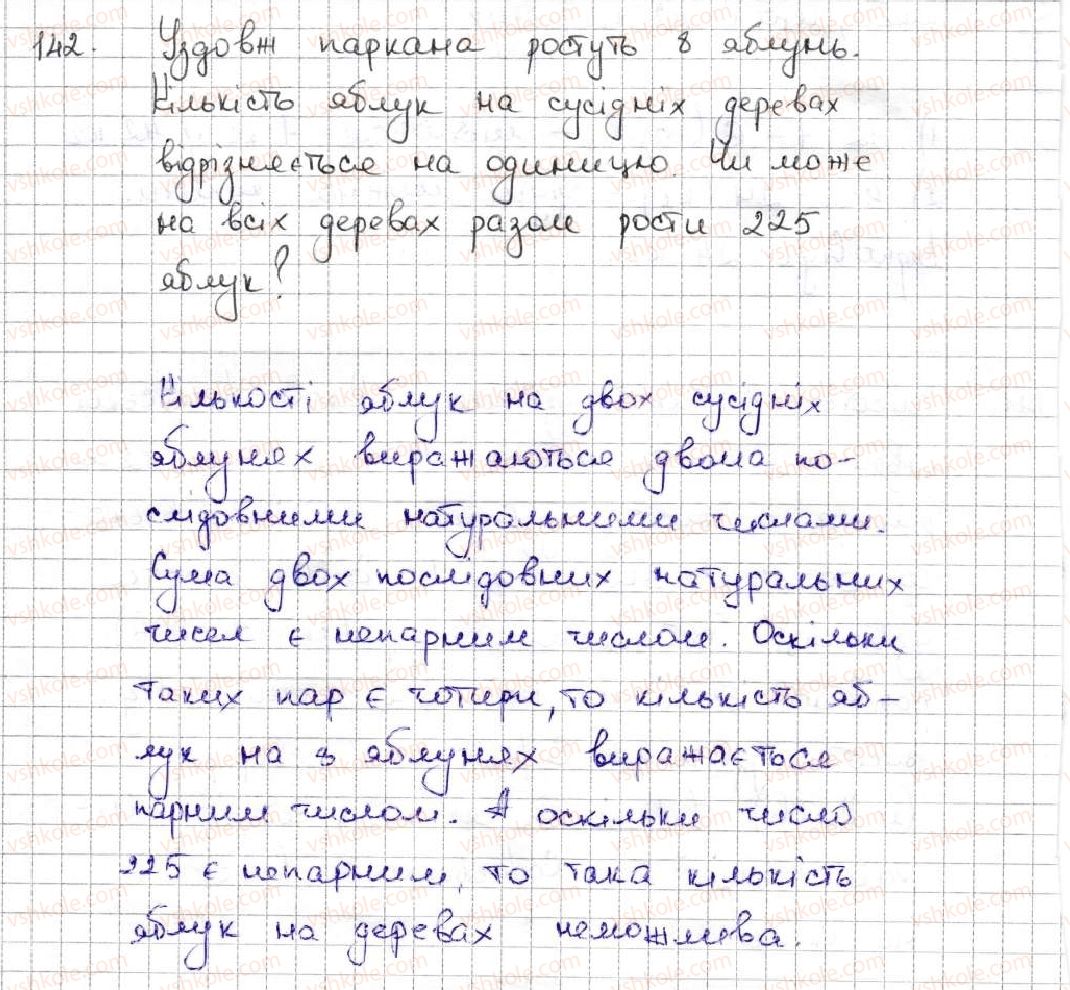 142. Уздовж паркана ростуть 8 яблунь.
Кількість яблук на сусідніх деревах
відрізняється на одиницю. Чи може
на всіх деревах разом рости 225
яблук?
Кількості яблук на двох сусідніх
яблунях виражаються двома по-
слідовними натуральними числами.
Сума двох послідовних натуральних
чисел є непарним числом. Оскільки
таких пар є чотири, то кількість яб-
лук на 8 яблунях виражається
парним числом. А оскільки число
225 є непарним, то така кількість
яблук на деревах неможлива.